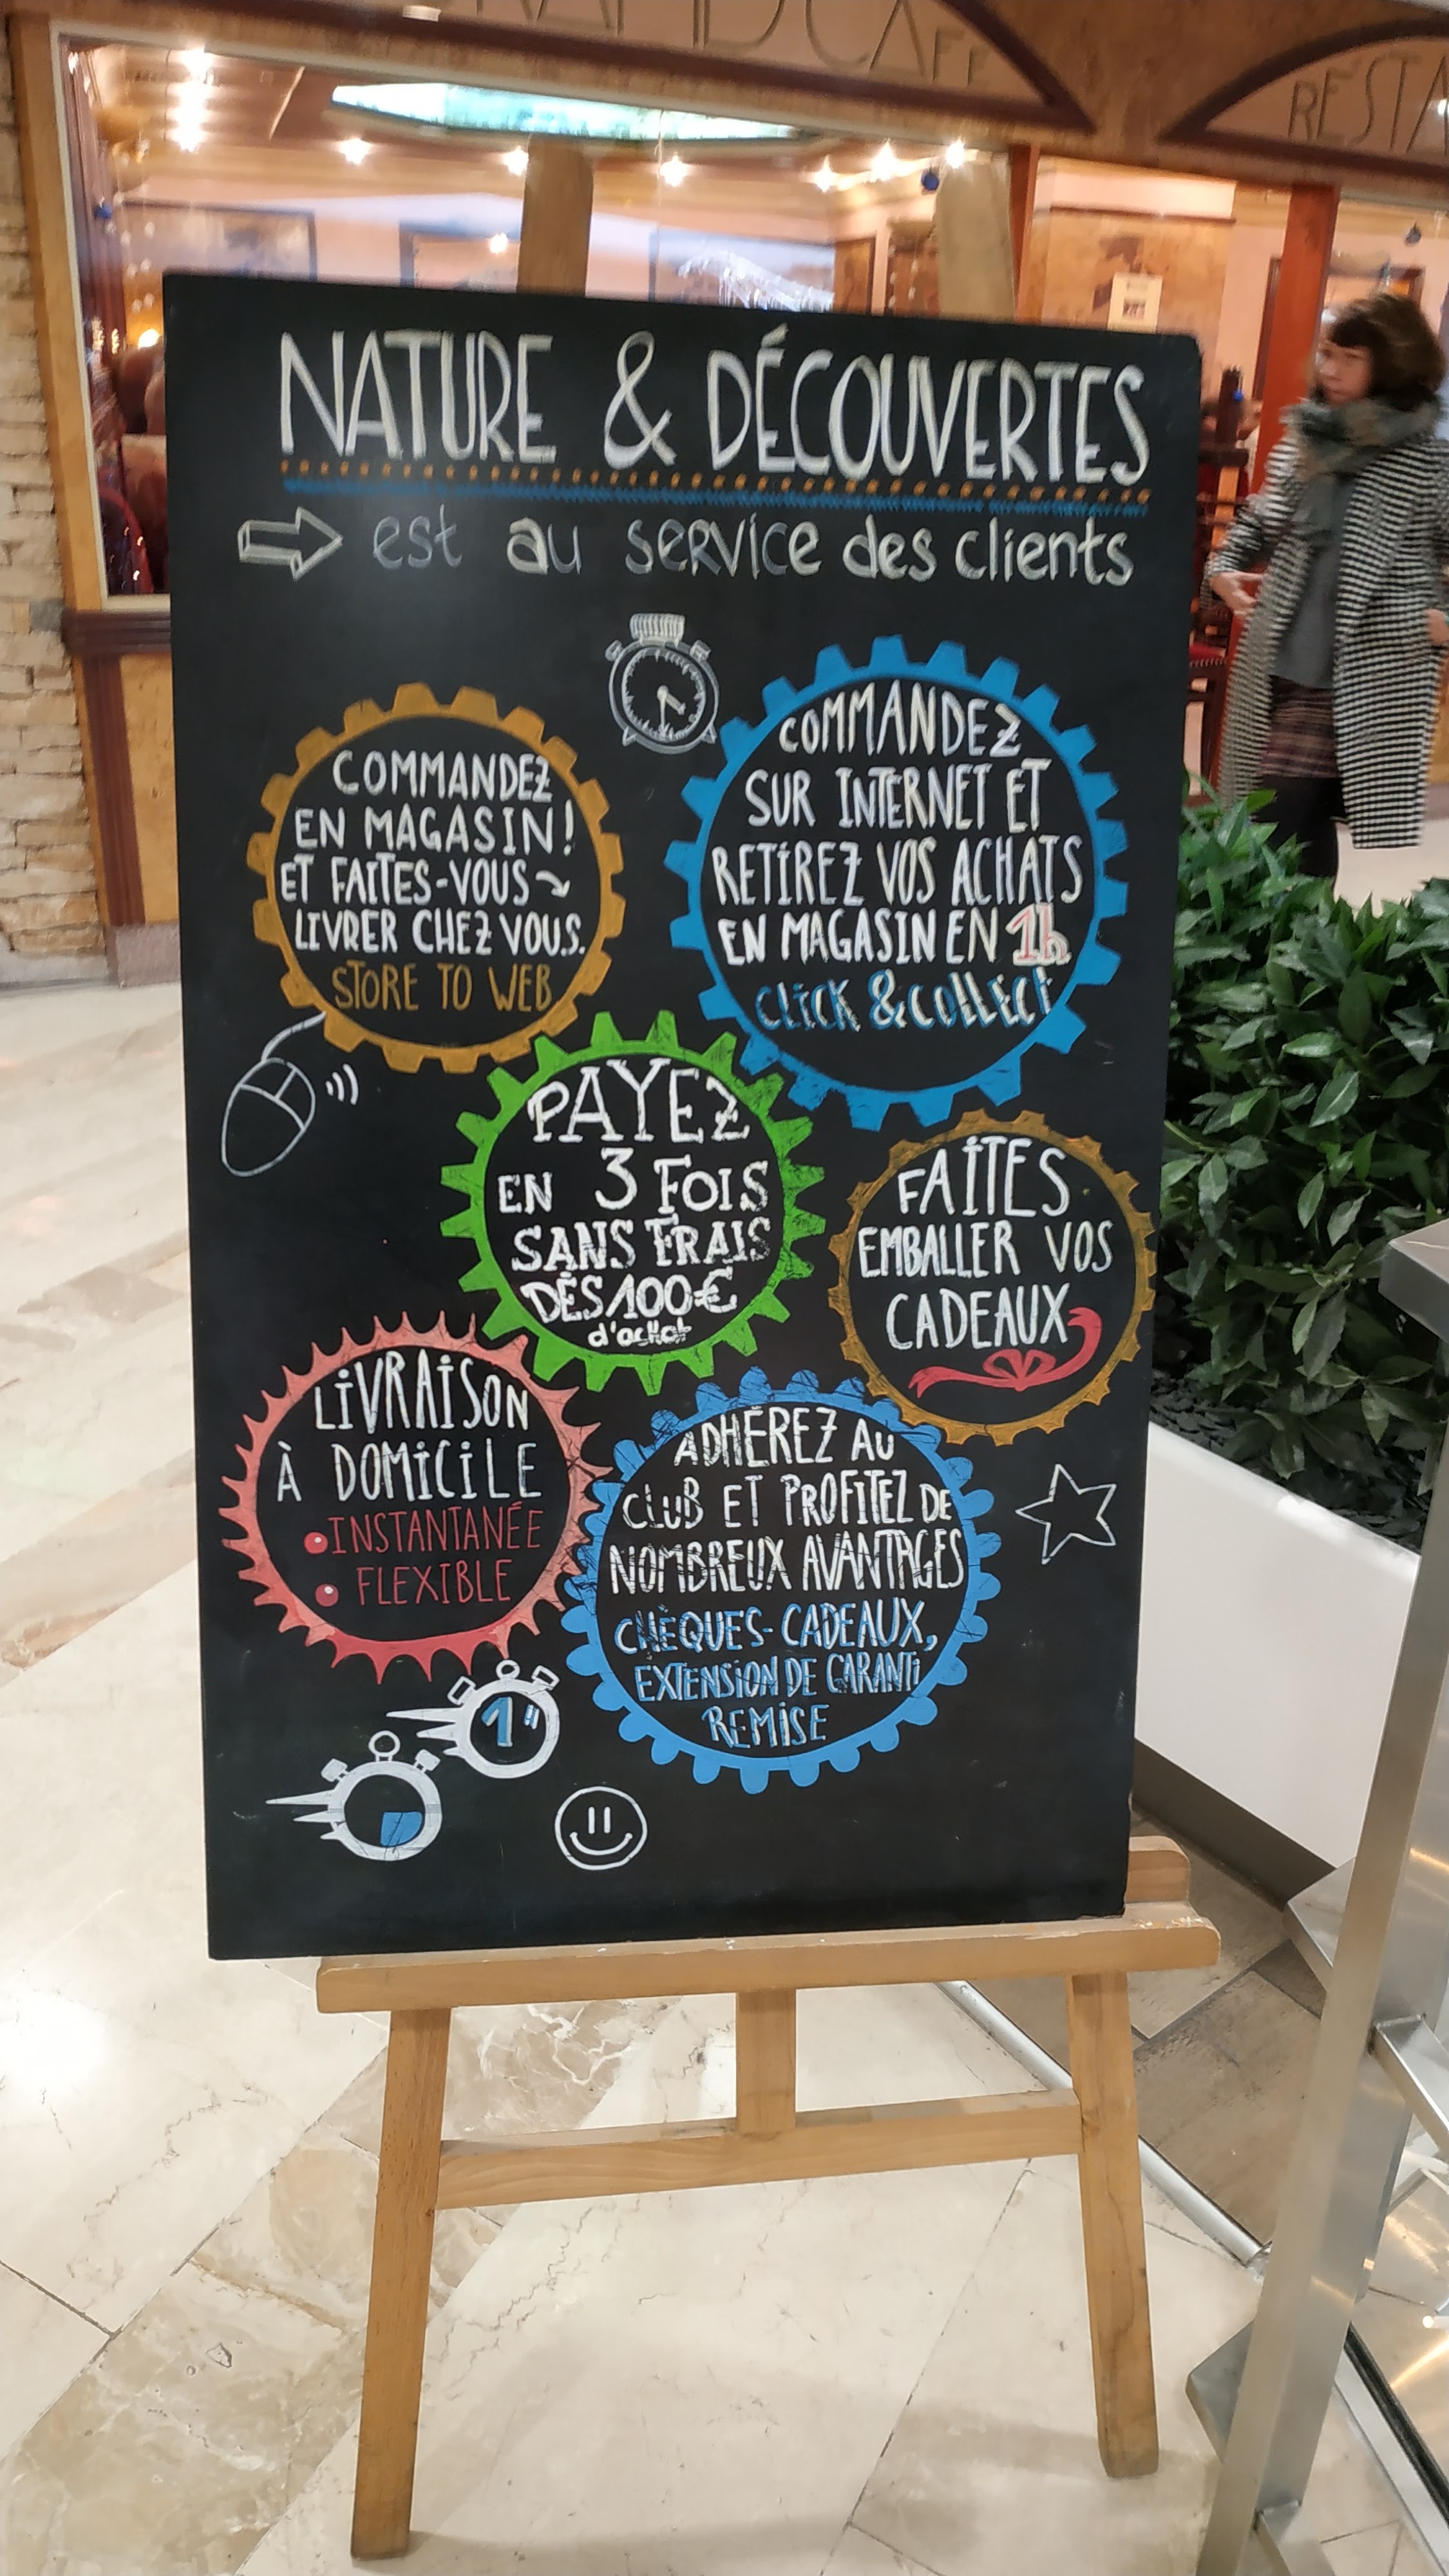 GRAND CAFE
RESTA
NATURE & DÉCOUVERTES
est au service des clients
COMMANDEZ
EN MAGASIN!
ET FAITES-VOUS
LIVRER CHEZ VOUS.
STORE TO WEB
COMMANDEZ
SUR INTERNET ET
RETIREZ VOS ACHATS
EN MAGASIN EN 1h
CLICK & COLLECT
PAYEZ
EN 3 FOIS
SANS FRAIS
DÈS 100€
d'achat
FAITES
EMBALLER VOS
CADEAUX
LIVRAISON
À DOMICILE
• INSTANTANÉE
• FLEXIBLE
ADHÉREZ AU
CLUB ET PROFITEZ DE
NOMBREUX AVANTAGES
CHÈQUES-CADEAUX,
EXTENSION DE GARANTI
REMISE
1"